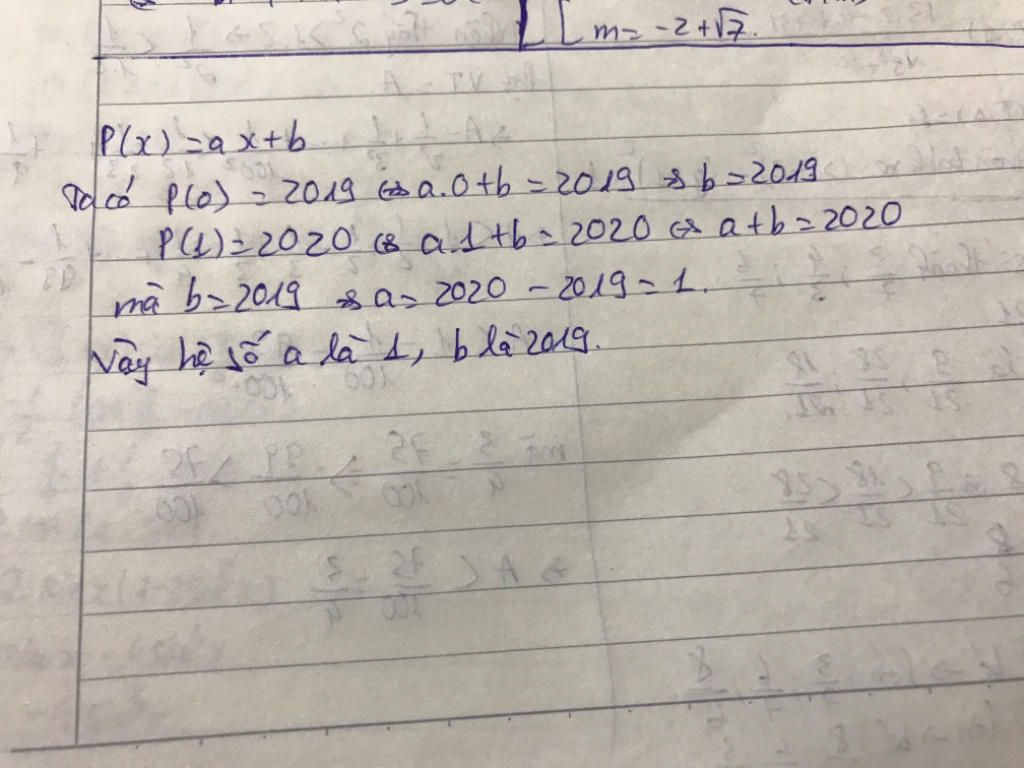 m = -2 + √7.
P(x) = ax + b
Ta có P(0) = 2019 ⇔ a.0 + b = 2019 ⇒ b = 2019
P(1) = 2020 ⇔ a.1 + b = 2020 ⇔ a + b = 2020
mà b = 2019 ⇒ a = 2020 - 2019 = 1.
Vậy hệ số a là 1, b là 2019.